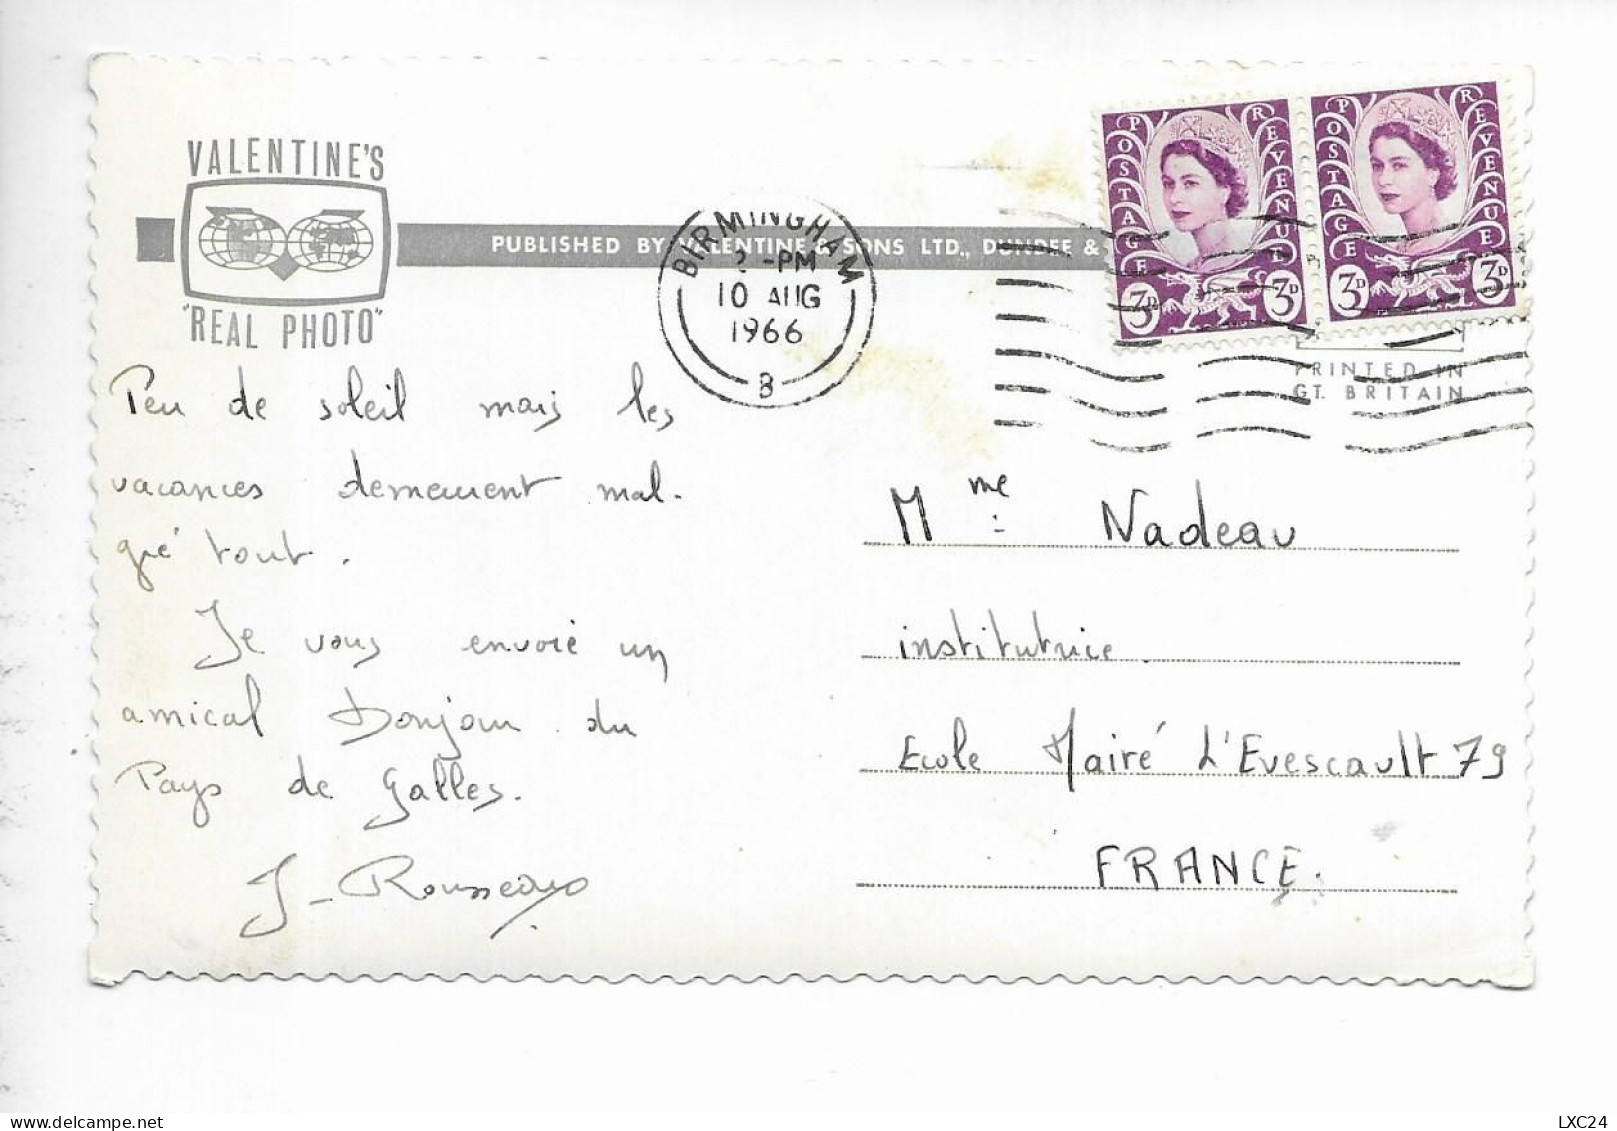 VALENTINE'S
"REAL PHOTO"
PUBLISHED BY VALENTINE & SONS LTD., DUNDEE &
BIRMINGHAM
2 -PM
10 AUG
1966
B
POSTAGE REVENUE
3D 3D
POSTAGE REVENUE
3D 3D
PRINTED IN
GT. BRITAIN
Peu de soleil mais les
vacances demeurent mal-
gré tout.
Je vous envoie un
amical bonjour du
Pays de Galles.
J. Rousseau
Mme Nadeau
institutrice
Ecole Mairé L'Evescault 79
FRANCE.
LXC24